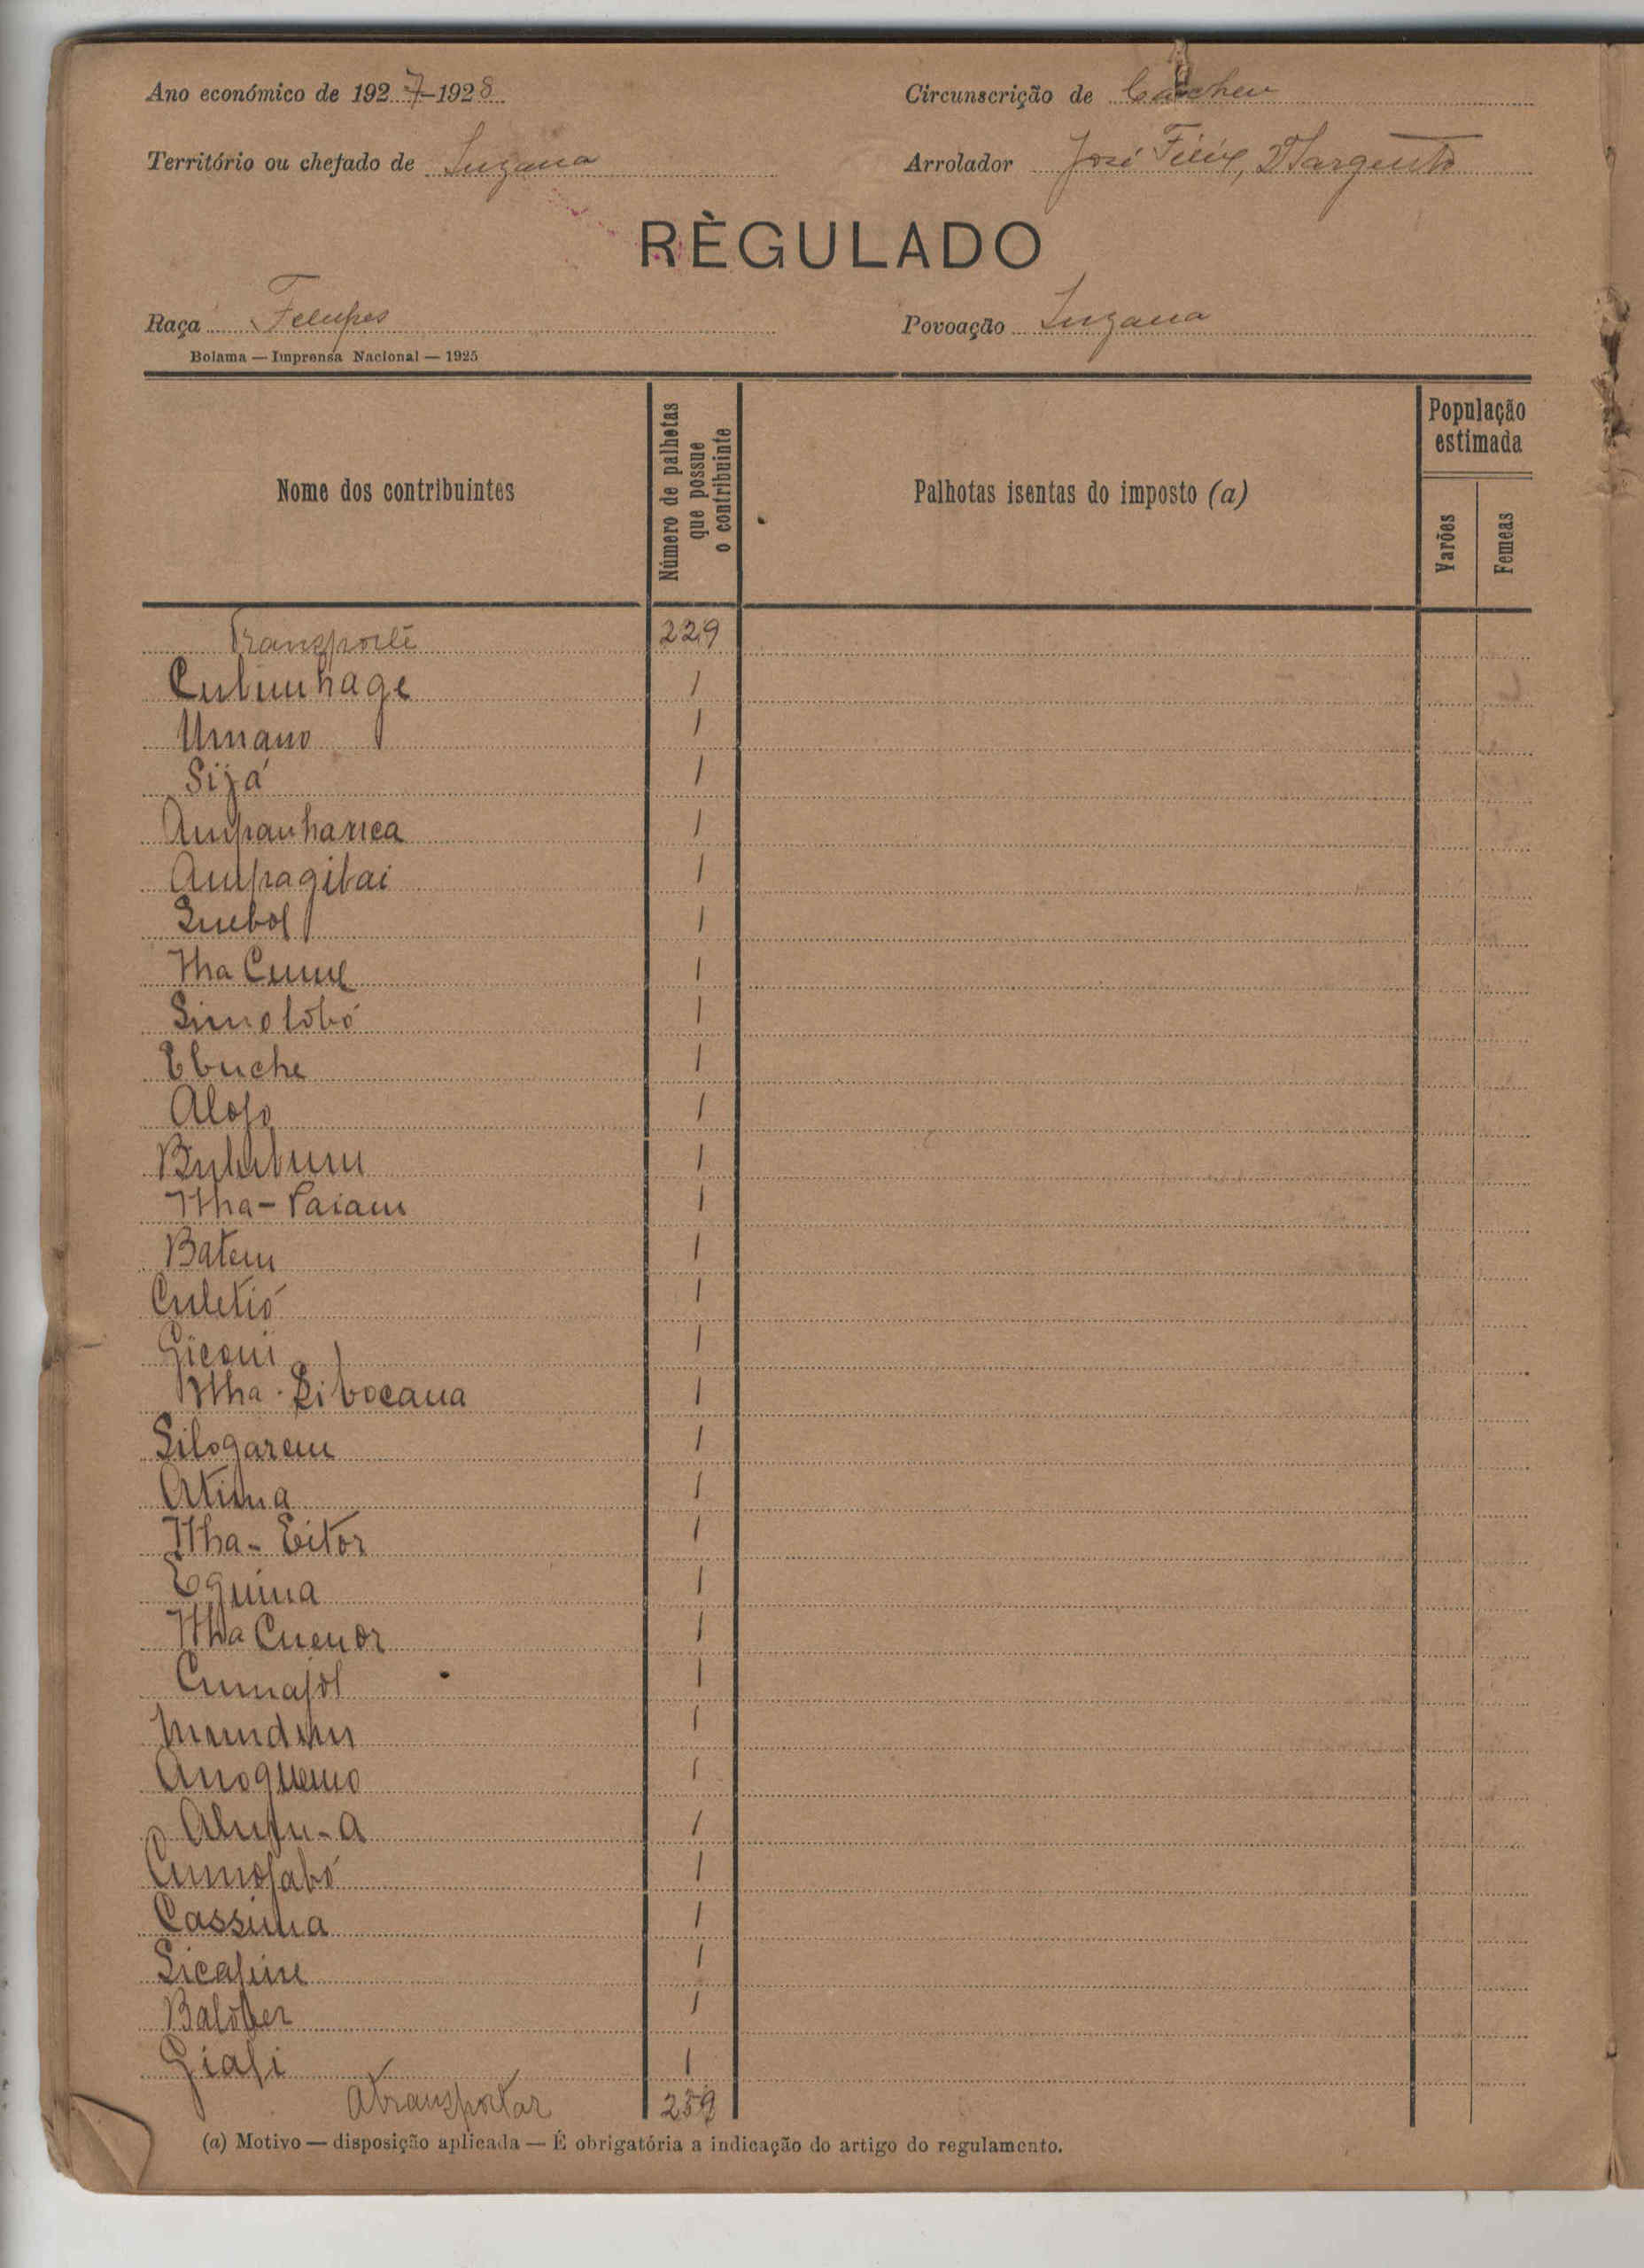 Ano económico de 1927-1928
Circunscrição de Cacheu
Território ou chefado de Suzana
Arrolador José Felix, 2º Sargento
RÈGULADO
Raça Felupes
Povoação Suzana
Bolama — Imprensa Nacional — 1925
Nome dos contribuintes
Número de palhotas que possue o contribuinte
Palhotas isentas do imposto (a)
População estimada
Varões
Femeas
Transporte 229
Cubunhage 1
Umano 1
Sijá 1
Ampanhanca 1
Ampagibai 1
Quebol 1
1
1
Ebuche 1
Alofo 1
1
Itha-Paiam 1
Batem 1
Culetió 1
Giconi 1
1
Silogarem 1
Atima 1
Itha-Eitor 1
Equina 1
Itha Cuenor 1
Cumajol 1
1
Anoquemo 1
1
1
Cassima 1
1
Balober 1
Giafi 1
A transportar 259
(a) Motivo — disposição aplicada — É obrigatória a indicação do artigo do regulamento.